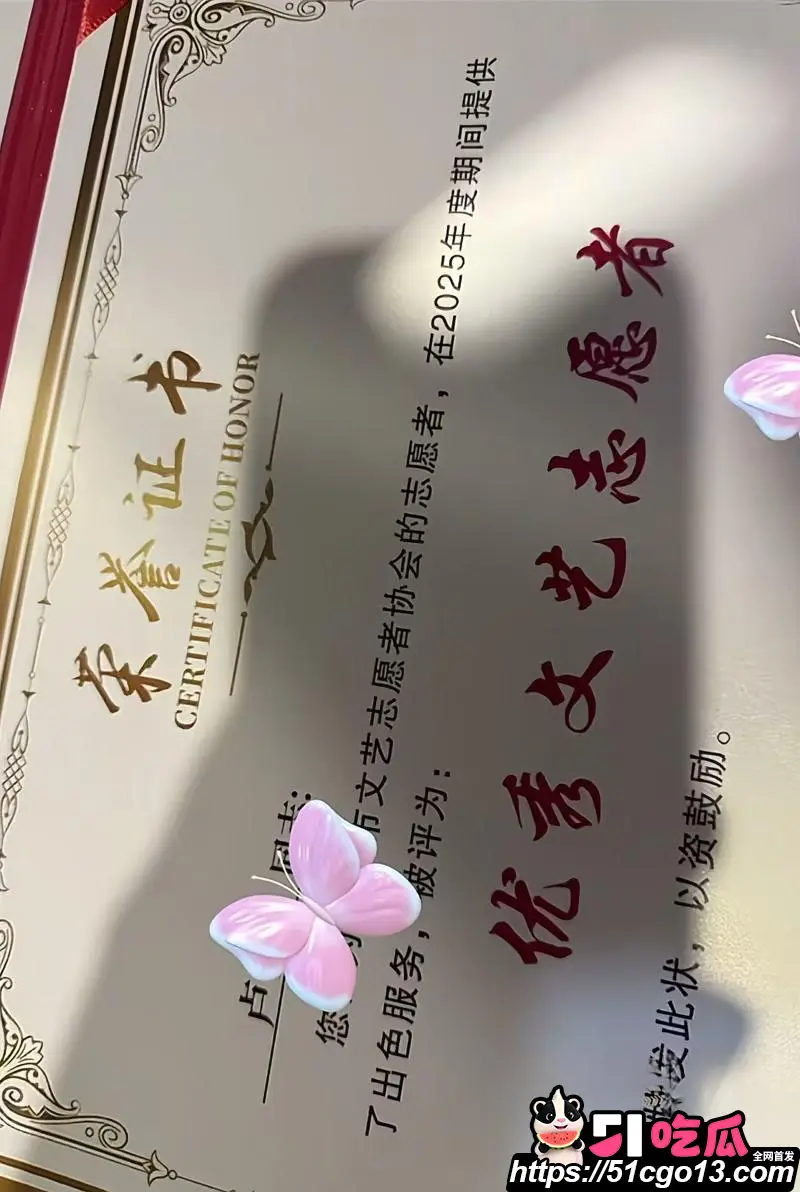 荣誉证书
CERTIFICATE OF HONOR
卢 同志:
您 市文艺志愿者协会的志愿者，在2025年度期间提供
了出色服务，被评为:
优秀文艺志愿者
发此状，以资鼓励。
51吃瓜
全网首发
https://51cgo13.com